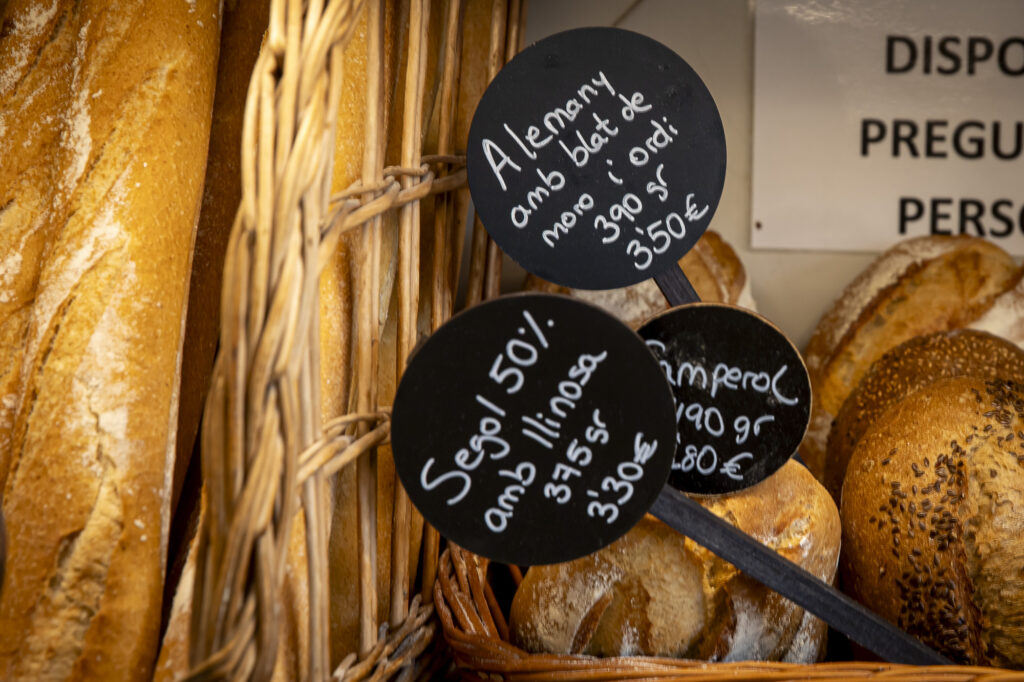 Alemany
amb blat de
moro i ordi
390 gr
3'50€
Segol 50%
amb llinosa
375 gr
3'30€
amperol
490 gr
80€
DISPO
PREGU
PERSO